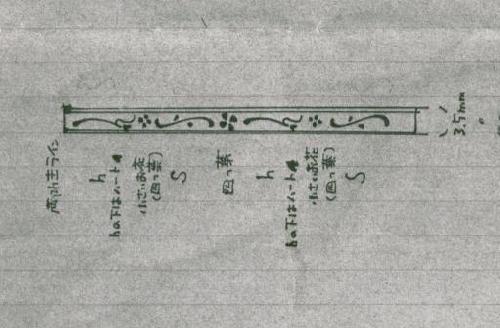 両端ミライン
h
hの下はハート♠
小さいお花
(四つ葉)
S
四つ葉
h
hの下はハート♠
小さいお花
(四つ葉)
S
3.5mm